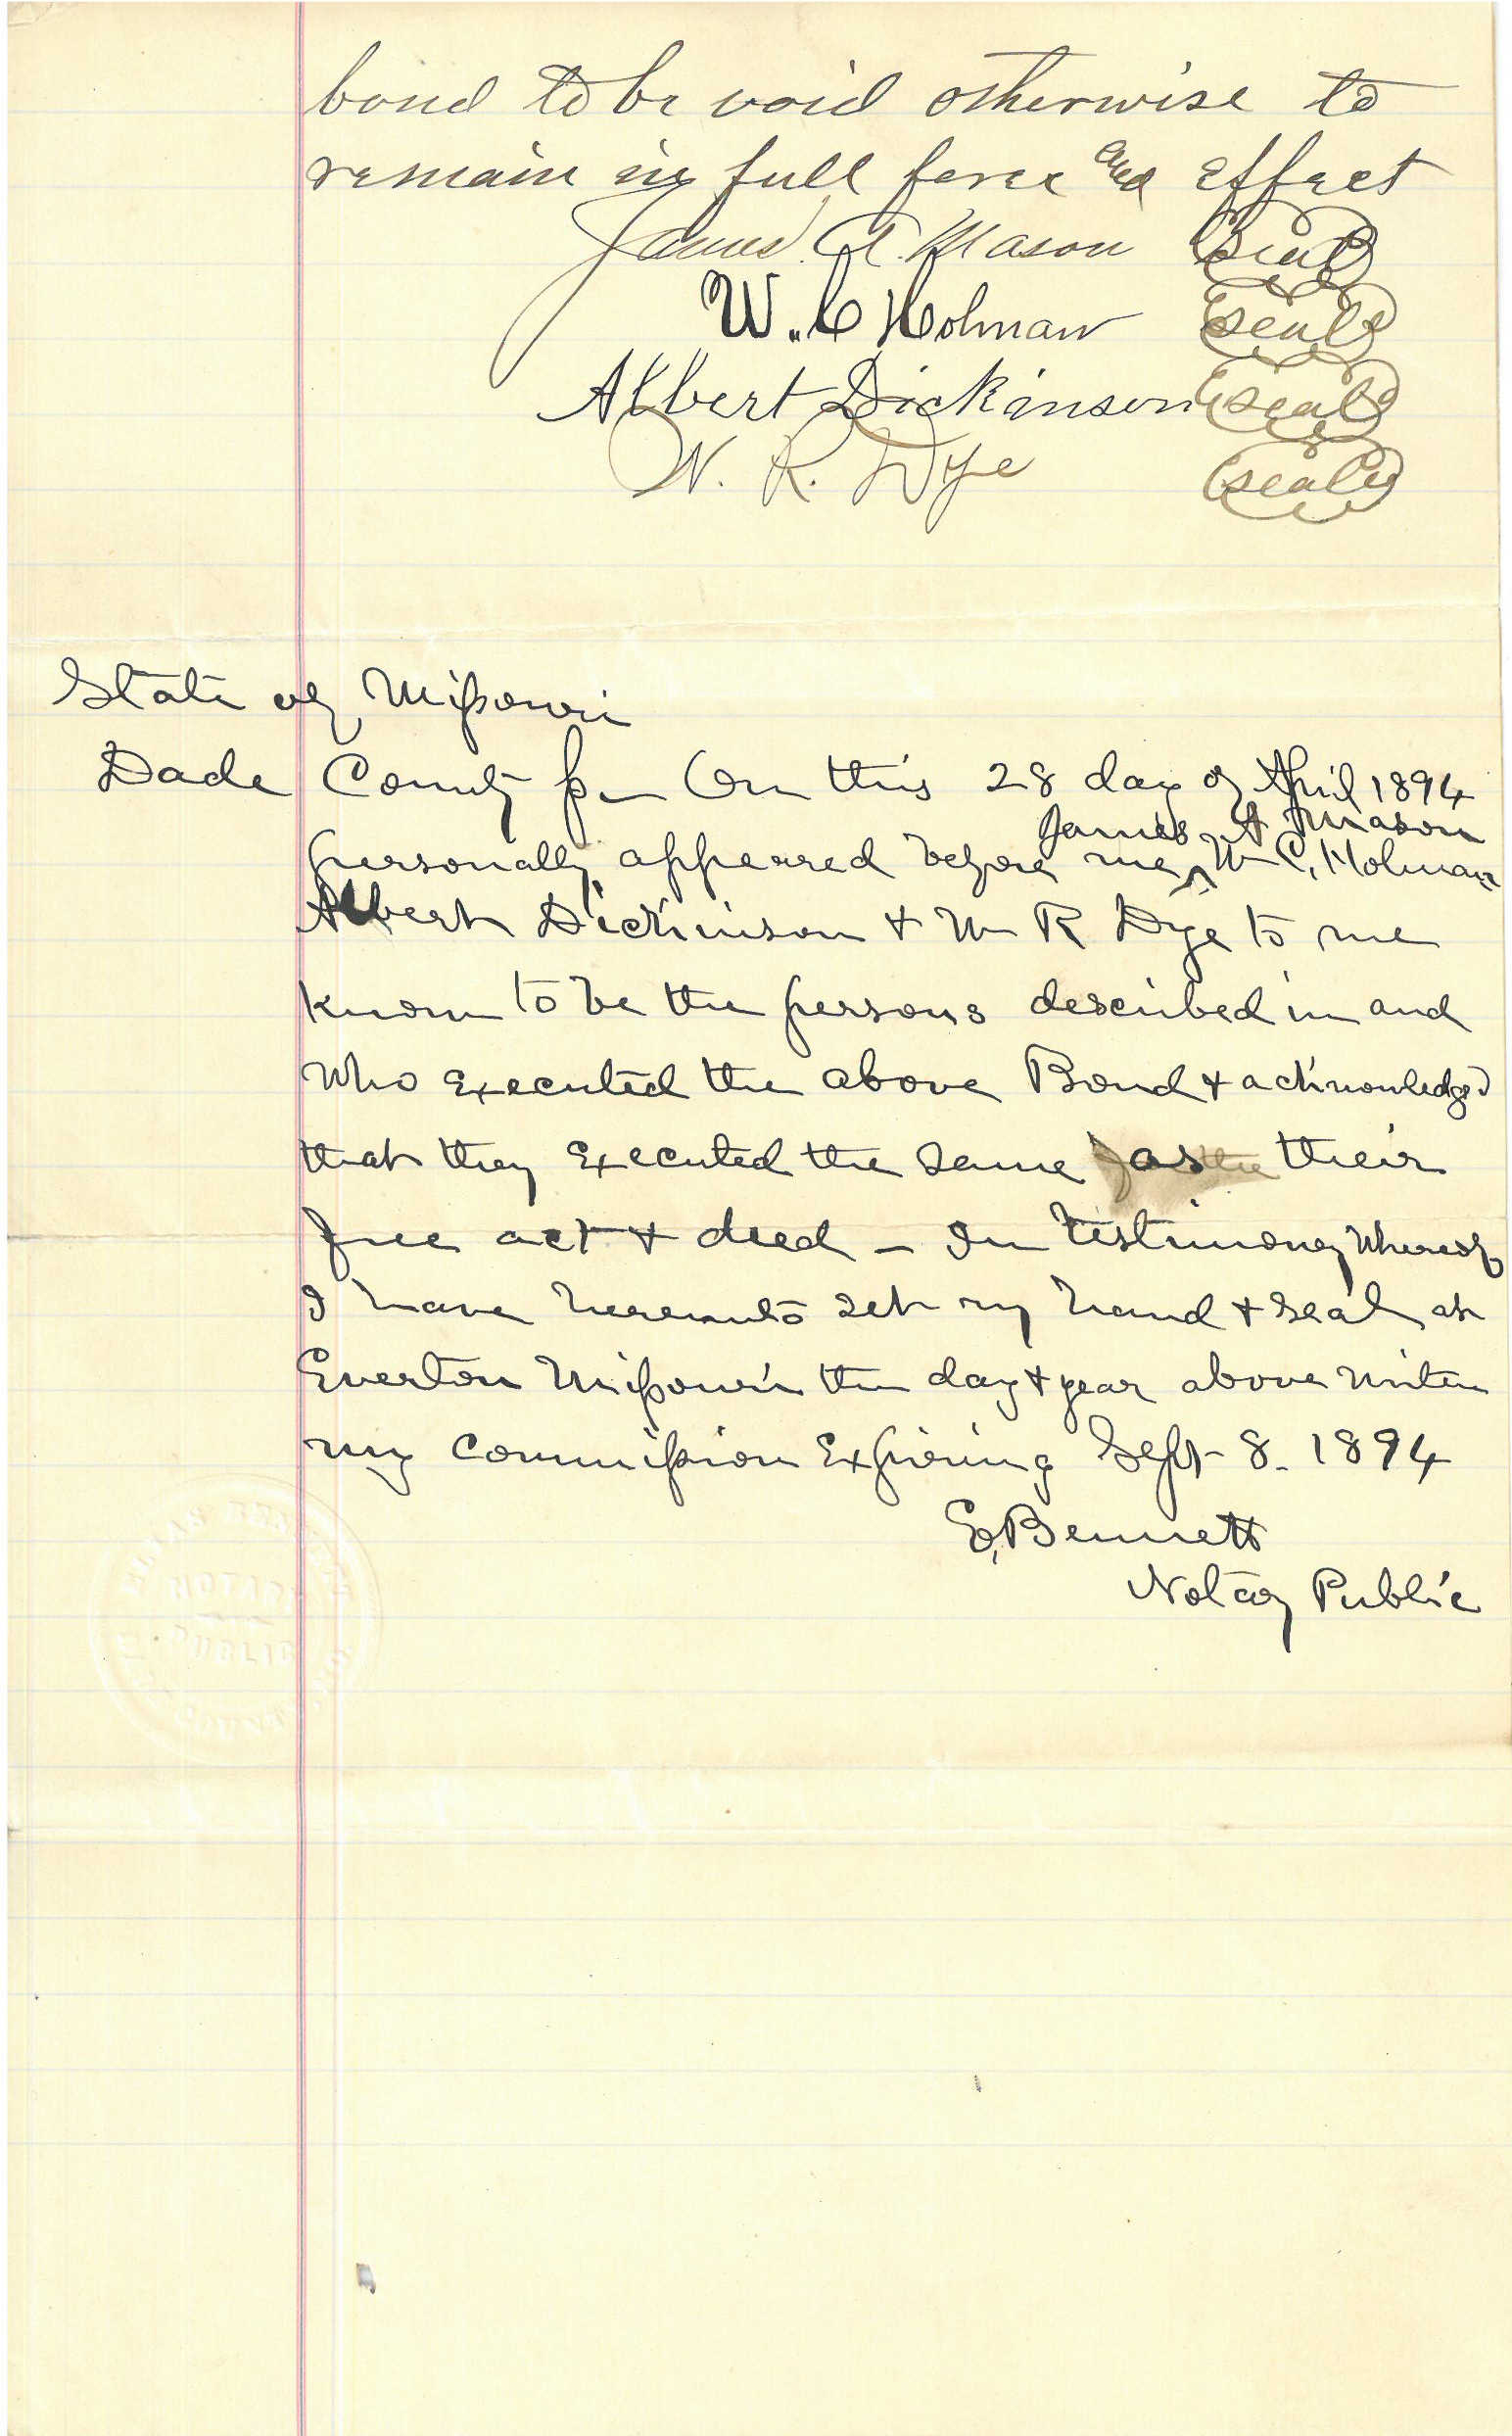 bond to be void otherwise to
remain in full force and effect
James A. Mason (seal)
W. C Holman (seal)
Albert Dickinson (seal)
W. R. Dye (seal)
State of Missouri
Dade County ss On this 28 day of April 1894
James A Mason
personally appeared before me ^ Wm C. Holman
Albert Dickinson + Wm R Dye to me
known to be the persons described in and
Who Executed the above Bond + acknowledged
that they Executed the same as their
free act + deed – In testimony Whereof
I have hereunto set my hand + seal at
Everton Missouri the day + year above writen
my Commission Expiring Sept 8. 1894
E. Bennett
Notary Public
ELIAS BENNETT
NOTARY
PUBLIC